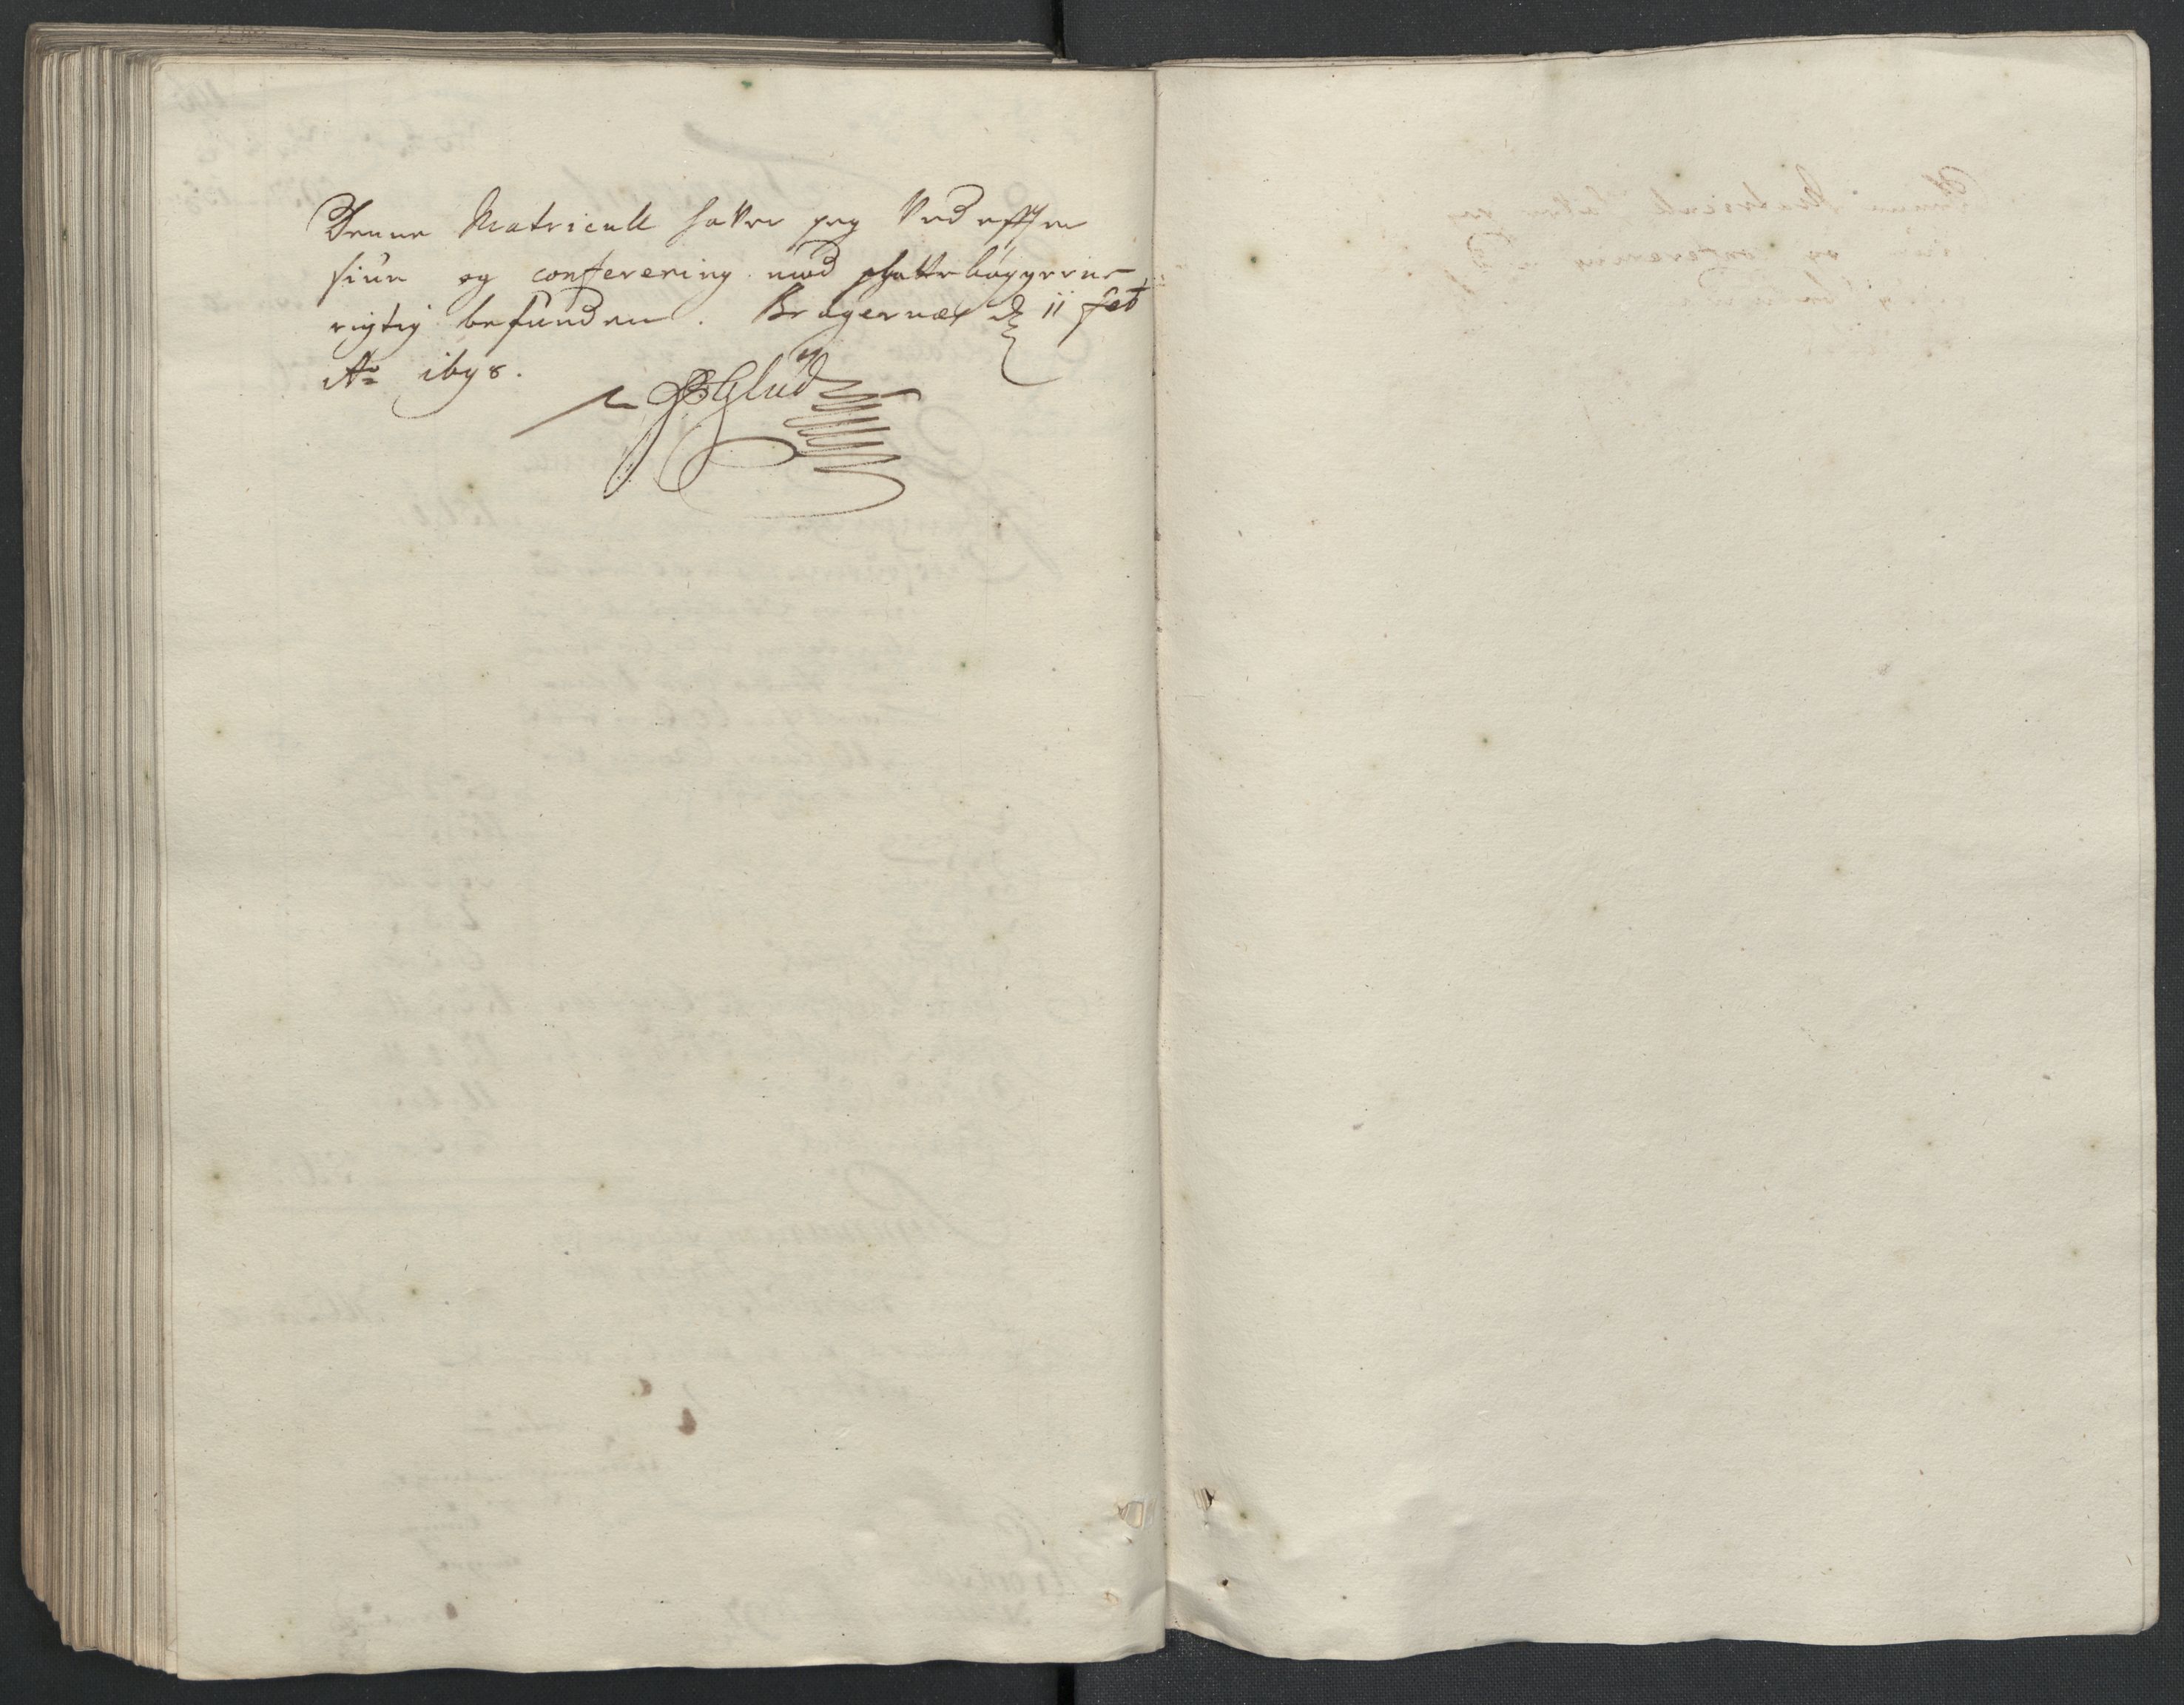 Denne Matricull haver jeg Ved effter
siun og conferering mod schattebøggerne
rigtig befunden. Bragernæs d 11 feb
Ao 1698.
Glud